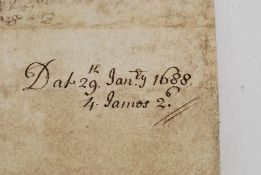 Dat 29th Janry 1688.
4. Jamos 2d